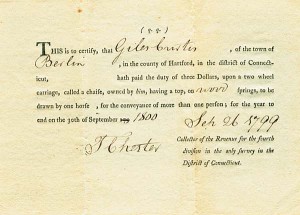 THIS is to certify, that Giles Curtis, of the town of
Berlin, in the county of Hartford, in the district of Connecti-
cut, hath paid the duty of three Dollars, upon a two wheel
carriage, called a chaise, owned by him, having a top, on wood springs, to be
drawn by one horse, for the conveyance of more than one person; for the year to
end on the 30th of September 1800
Sep. 26 1799
T Chester
Collector of the Revenue for the fourth
division in the only survey in the
District of Connecticut.